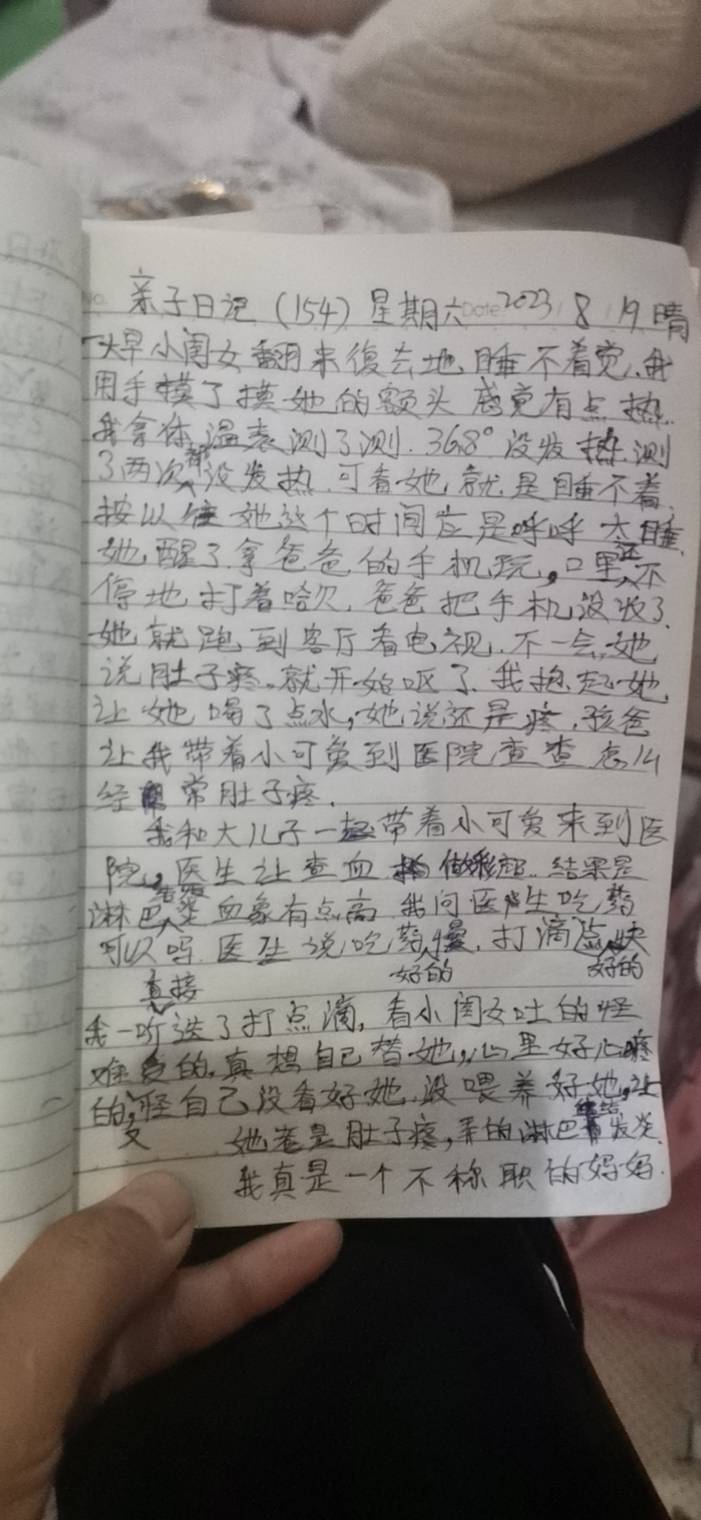 亲子日记（154）星期六 Date 2023 8 19 晴
一大早小闺女翻来復去地睡不着觉，我
用手摸了摸她的额头感觉有点热.
我拿体温表测了测.36.8°没发热.测
了两次都没发热.可看她就是睡不着.
按以往她这个时间应是呼呼大睡.
她醒了.拿爸爸的手机玩，口里还不
停地打着哈欠.爸爸把手机没收了.
她就跑到客厅看电视.不一会她
说肚子疼.就开始呕了.我抱起她
让她喝了点水，她说还是疼.孩爸
让我带着小可爱到医院查查怎么
经常肚子疼.
我和大儿子一起带着小可爱来到医
院，医生让查血做彩超.结果是
淋巴发炎血象有点高 我问医生吃药
可以吗.医生说吃药好的慢.打点滴好的快
我一听直接选了打点滴，看小闺女吐的怪
难受的.真想自己替她，心里好心疼
的，又怪自己没看好她.没喂养好她，让
她老是肚子疼，弄的淋巴结发炎.
我真是一个不称职的妈妈.